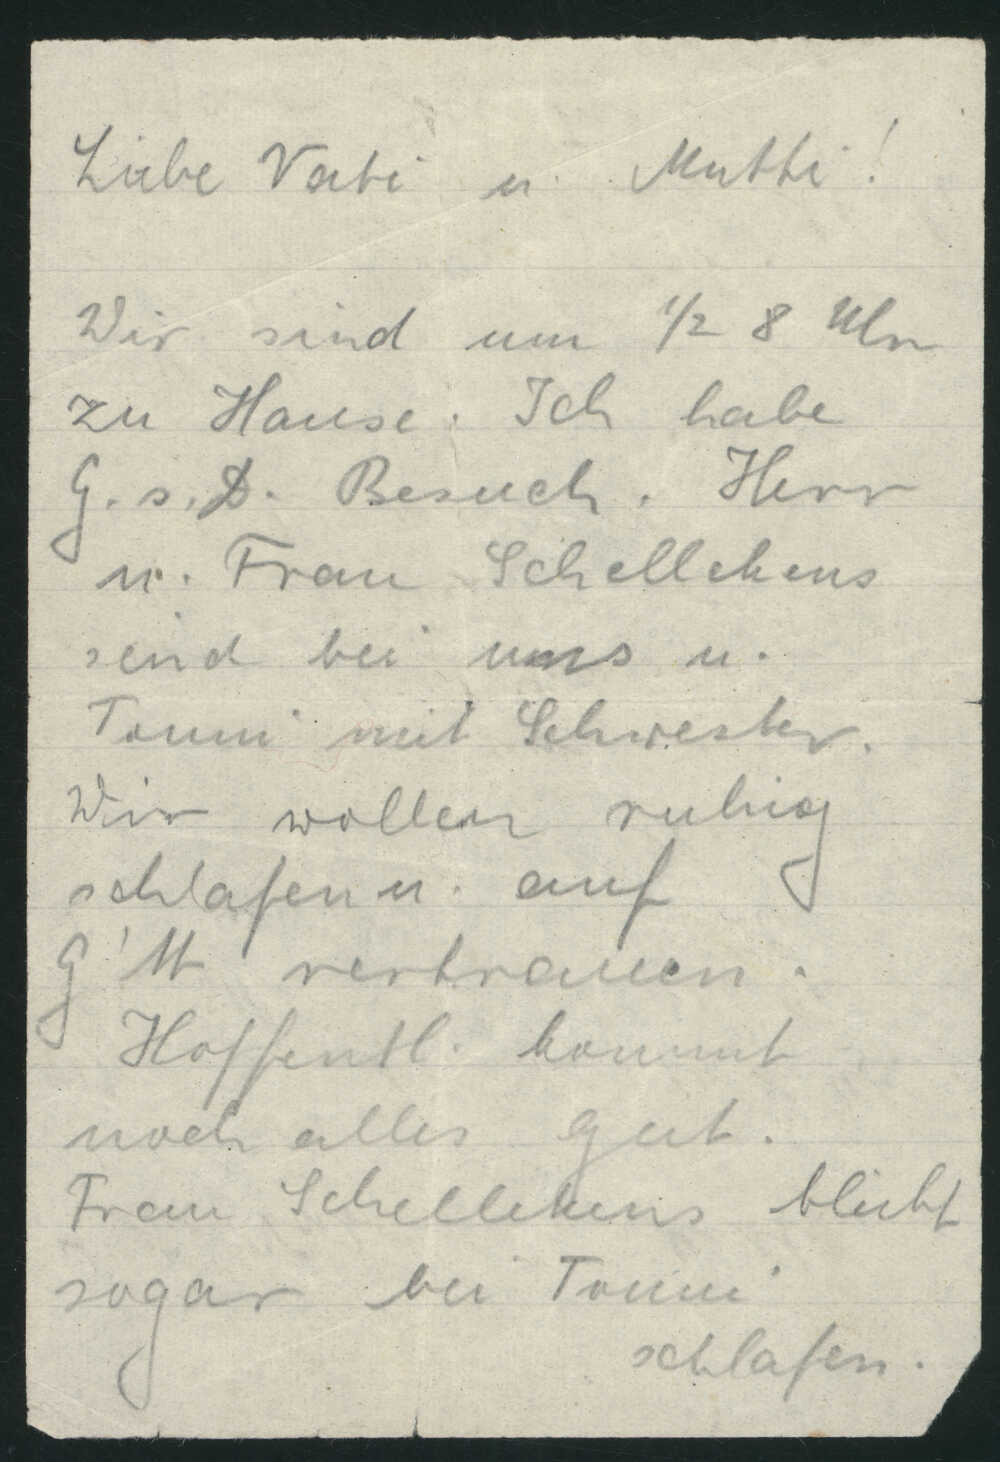 Liebe Vati u. Mutti!
Wir sind um 1/2 8 Uhr
zu Hause. Ich habe
G. s. D. Besuch. Herr
u. Frau Schellekens
sind bei uns u.
Tonni mit Schwester.
Wir wollen ruhig
schlafen u. auf
G'tt vertrauen.
Hoffentl. kommt
noch alles gut.
Frau Schellekens bleibt
sogar bei Tonni
schlafen.